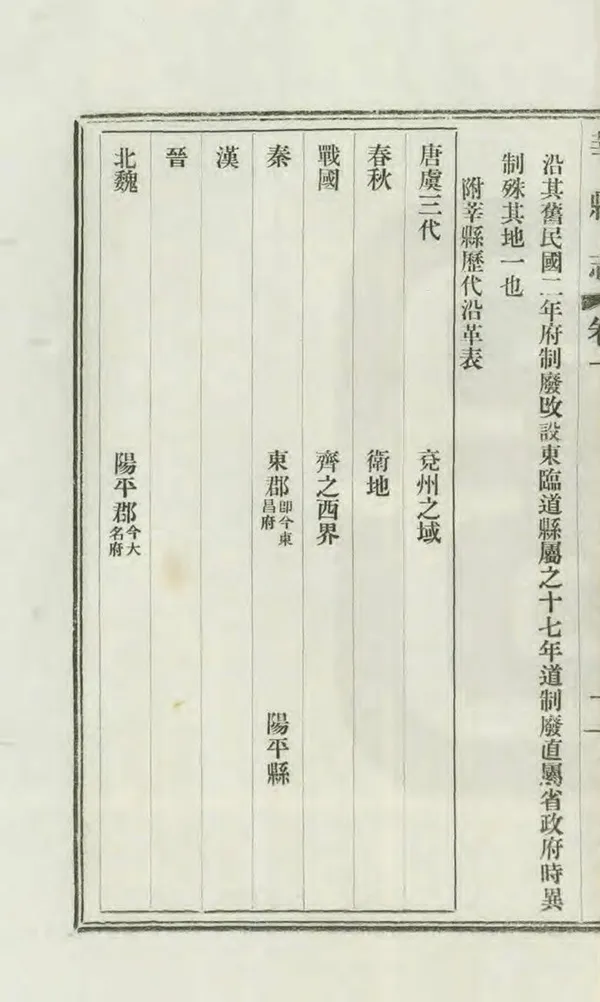 莘縣志 卷一
沿其舊民國二年府制廢改設東臨道縣屬之十七年道制廢直屬省政府時異
制殊其地一也
附莘縣歷代沿革表
唐虞三代 兗州之域
春秋 衛地
戰國 齊之西界
秦 東郡 即今東昌府 陽平縣
漢
晉
北魏 陽平郡 今大名府